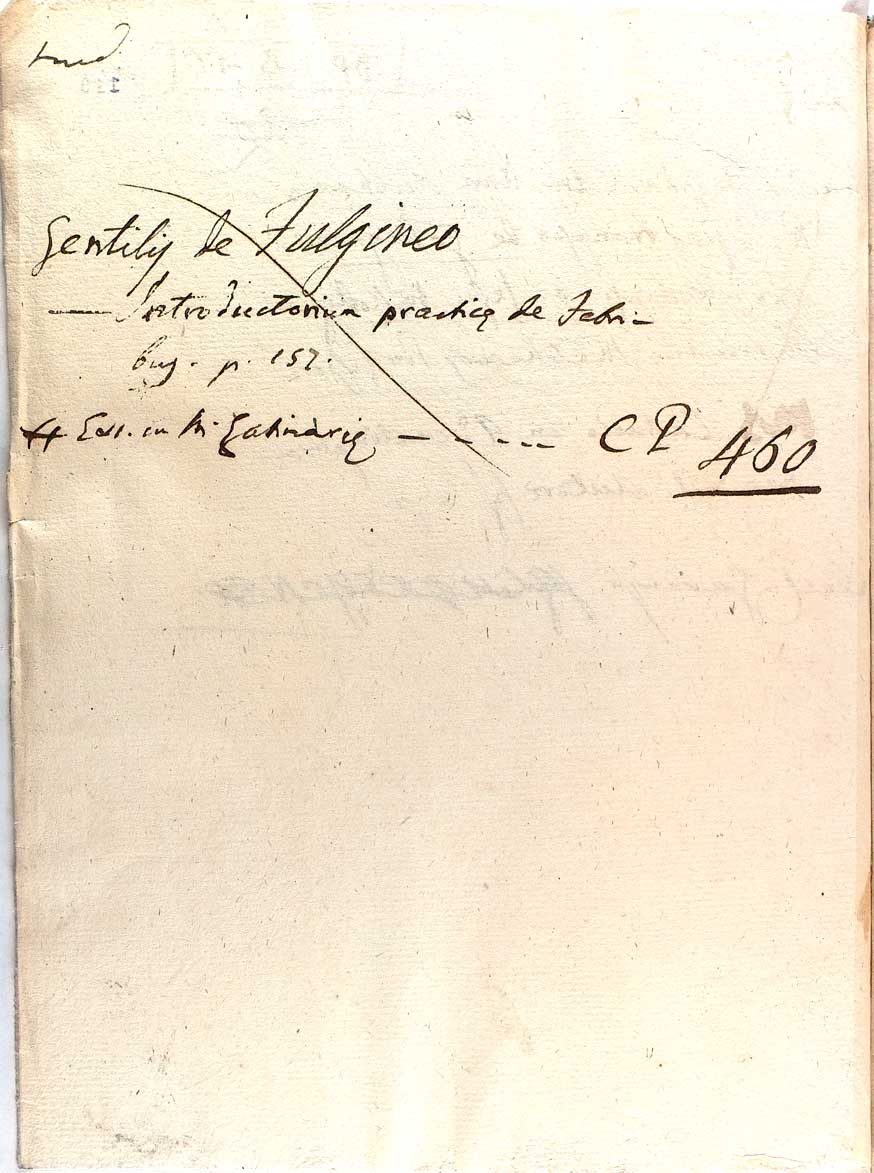 med
Gentilis de Fulgineo
— Introductorium practicę de Febri-
bus. p. 157.
in M. Gatinarię - - - - - CP 460